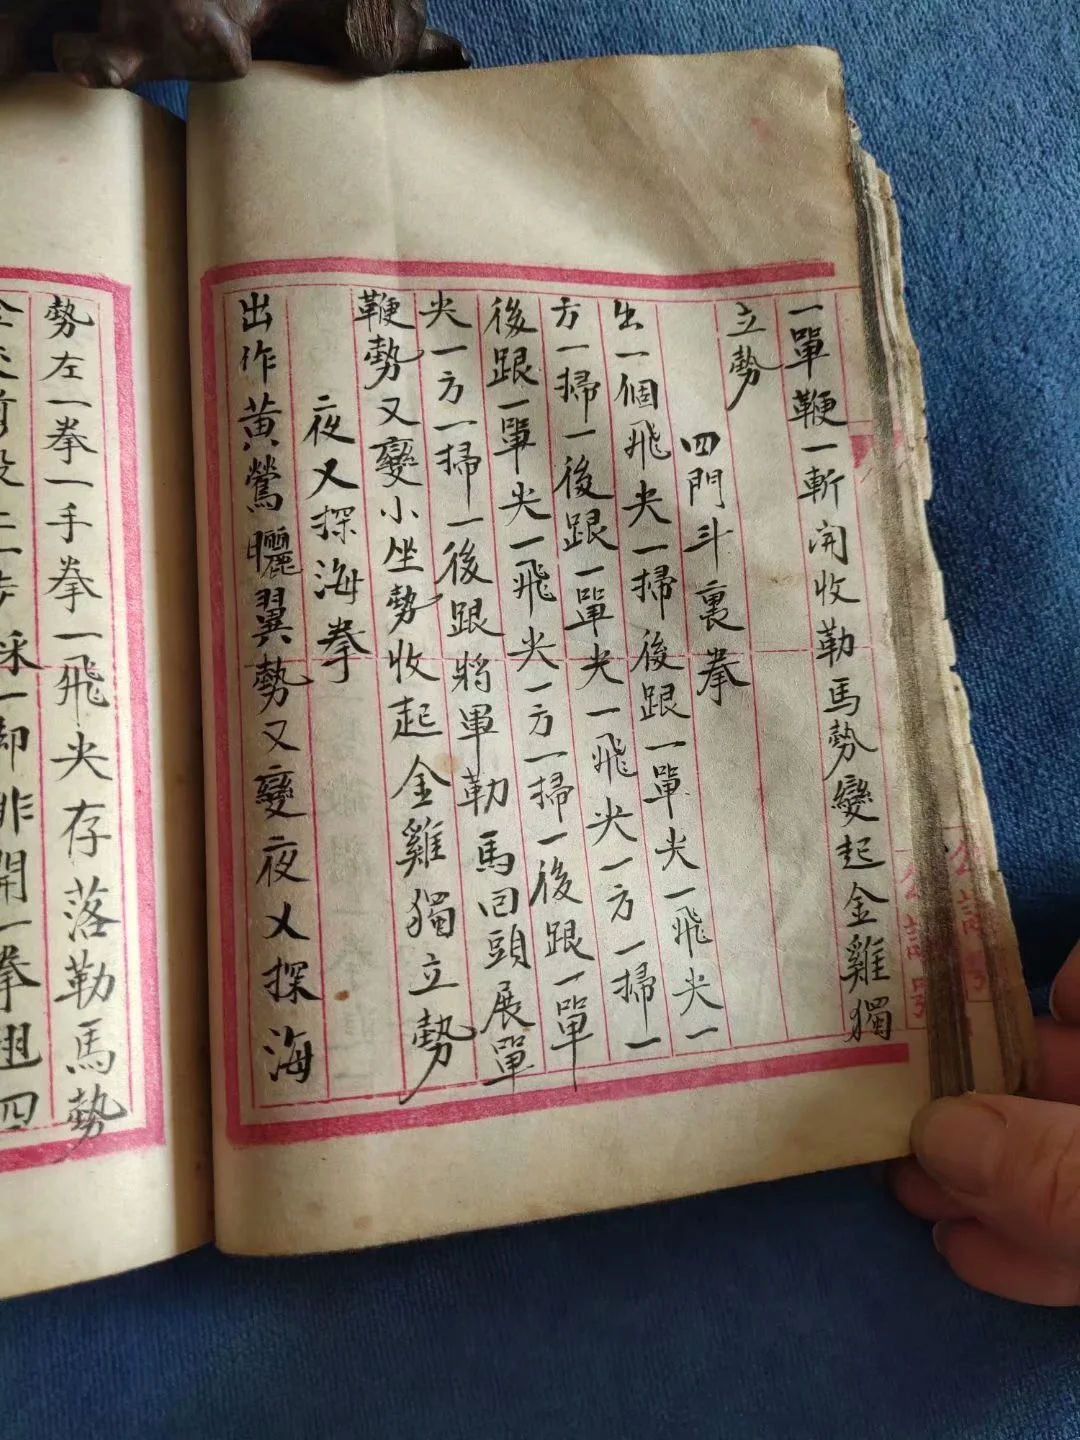 一單鞭一斬開收勒馬勢變起金雞獨
立勢
四門斗裏拳
出一個飛尖一掃後跟一單尖一飛尖一
方一掃一後跟一單尖一飛尖一方一掃一
後跟一單尖一飛尖一方一掃一後跟一單
尖一方一掃一後跟將軍勒馬回頭展單
鞭勢又變小坐勢收起金雞獨立勢
夜叉探海拳
出作黄鶯曬翼勢又變夜叉探海
勢左一拳一手拳一飛尖存落勒馬勢
一却排開一拳四
公記號